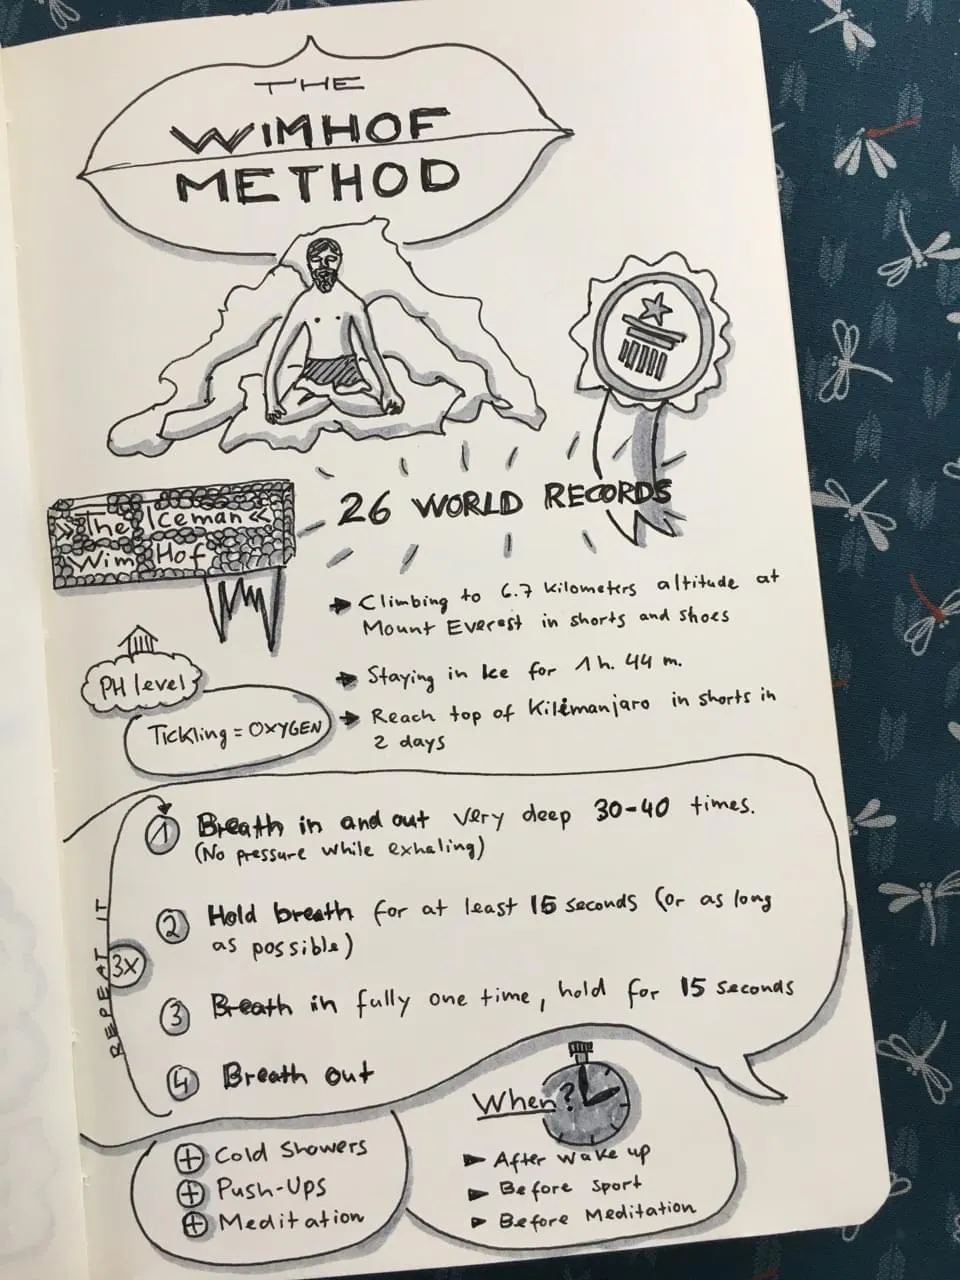 THE
WIMHOF
METHOD
26 WORLD RECORDS
»The Iceman«
Wim Hof
→ Climbing to 6.7 Kilometers altitude at
Mount Everest in shorts and shoes
→ Staying in Ice for 1h. 44 m.
→ Reach top of Kilimanjaro in shorts in
2 days
PH level
Tickling = OXYGEN
1 Breath in and out very deep 30-40 times.
(No pressure while exhaling)
2 Hold breath for at least 15 seconds (or as long
as possible)
3 Breath in fully one time, hold for 15 seconds
4 Breath out
REPEAT IT
3x
+ Cold Showers
+ Push-Ups
+ Meditation
When?
► After wake up
► Before sport
► Before Meditation